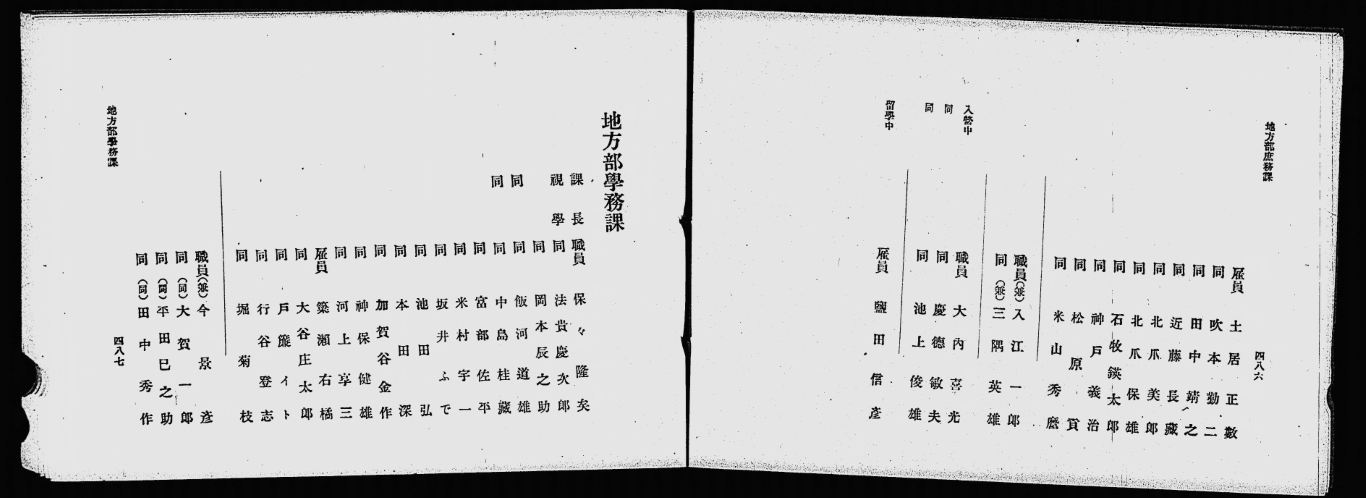 地方部庶務課
四八六
雇員 土居正數
同 吹本勤二
同 田中靖之
同 近藤長藏
同 北爪美郎
同 北爪保雄
同 石牧鍈太郎
同 神戸義治
同 松原貢
同 米山秀麿
職員(兼) 入江一郎
同(兼) 三隅英雄
入營中 職員 大內喜光
同 同 慶德敏夫
同 同 池上俊雄
留學中 雇員 鹽田信彥
地方部學務課
課長 職員 保々隆矣
視學 同 法貴慶次郎
同 岡本辰之助
同 同 飯河道雄
同 同 中島桂藏
同 富部佐平
同 米村宇一
同 坂井ふで
同 池田弘
同 本田深
同 加賀谷金作
同 神保健雄
同 河上享三
雇員 簗瀨右橘
同 大谷庄太郎
同 戶簱イト
同 行谷登志
同 堀菊枝
職員(兼) 今景彥
同(同) 大賀一郎
同(同) 平田巳之助
同(同) 田中秀作
四八七
地方部學務課